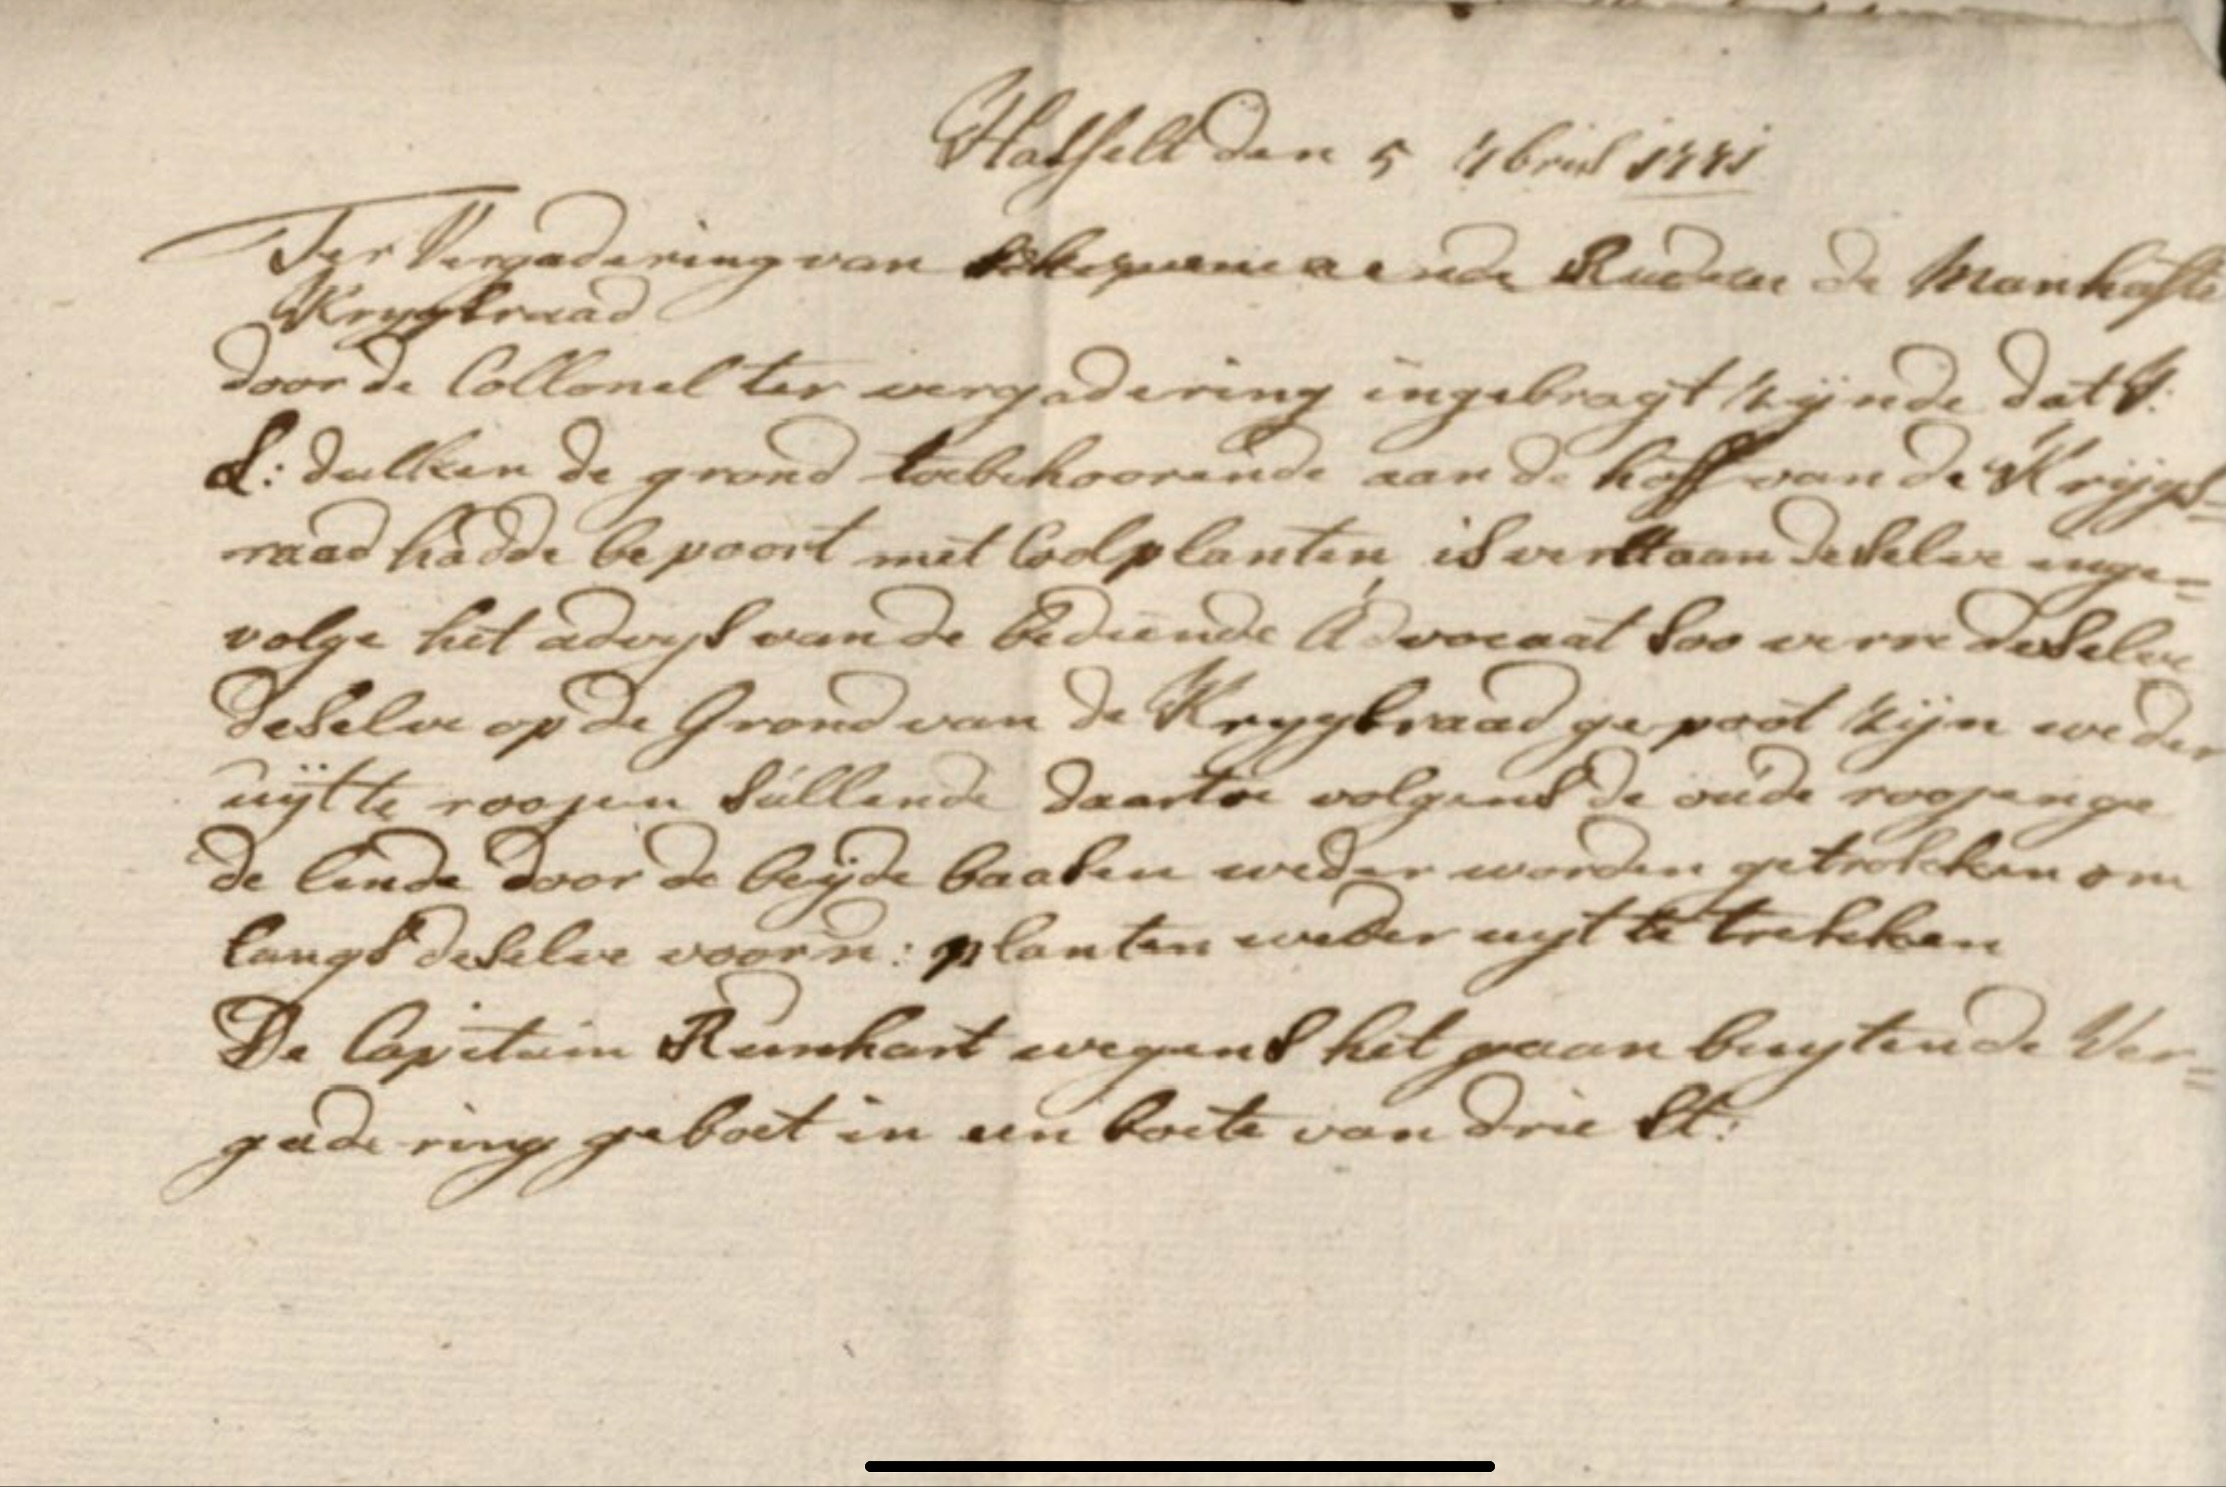 Hasselt den 5 7bris 1781
Ter Vergadering van Schepenen ende Raden de Manhafte
Krygsraad
door de Collonel ter vergadering ingebragt zijnde dat J:
L: dulken de grond toebehoorende aan de hoff van de Krijgs=
raad hadde bepoort met Coolplanten, is verstaan deselve inge=
volge het advys van de bediende Advocaat soo verre deselve
deselve op de Grond van de Krygsraad gepoot zijn weder
uijt te roojen sullende daartoe volgens de oude roojenge
de linde door de beijde baaken weder worden getrokken om
langs deselve voorn: planten weder uyt te trekken
De Capitain Runhart wegens het gaan buyten de Ver=
gadering geboet in een boete van drie St: